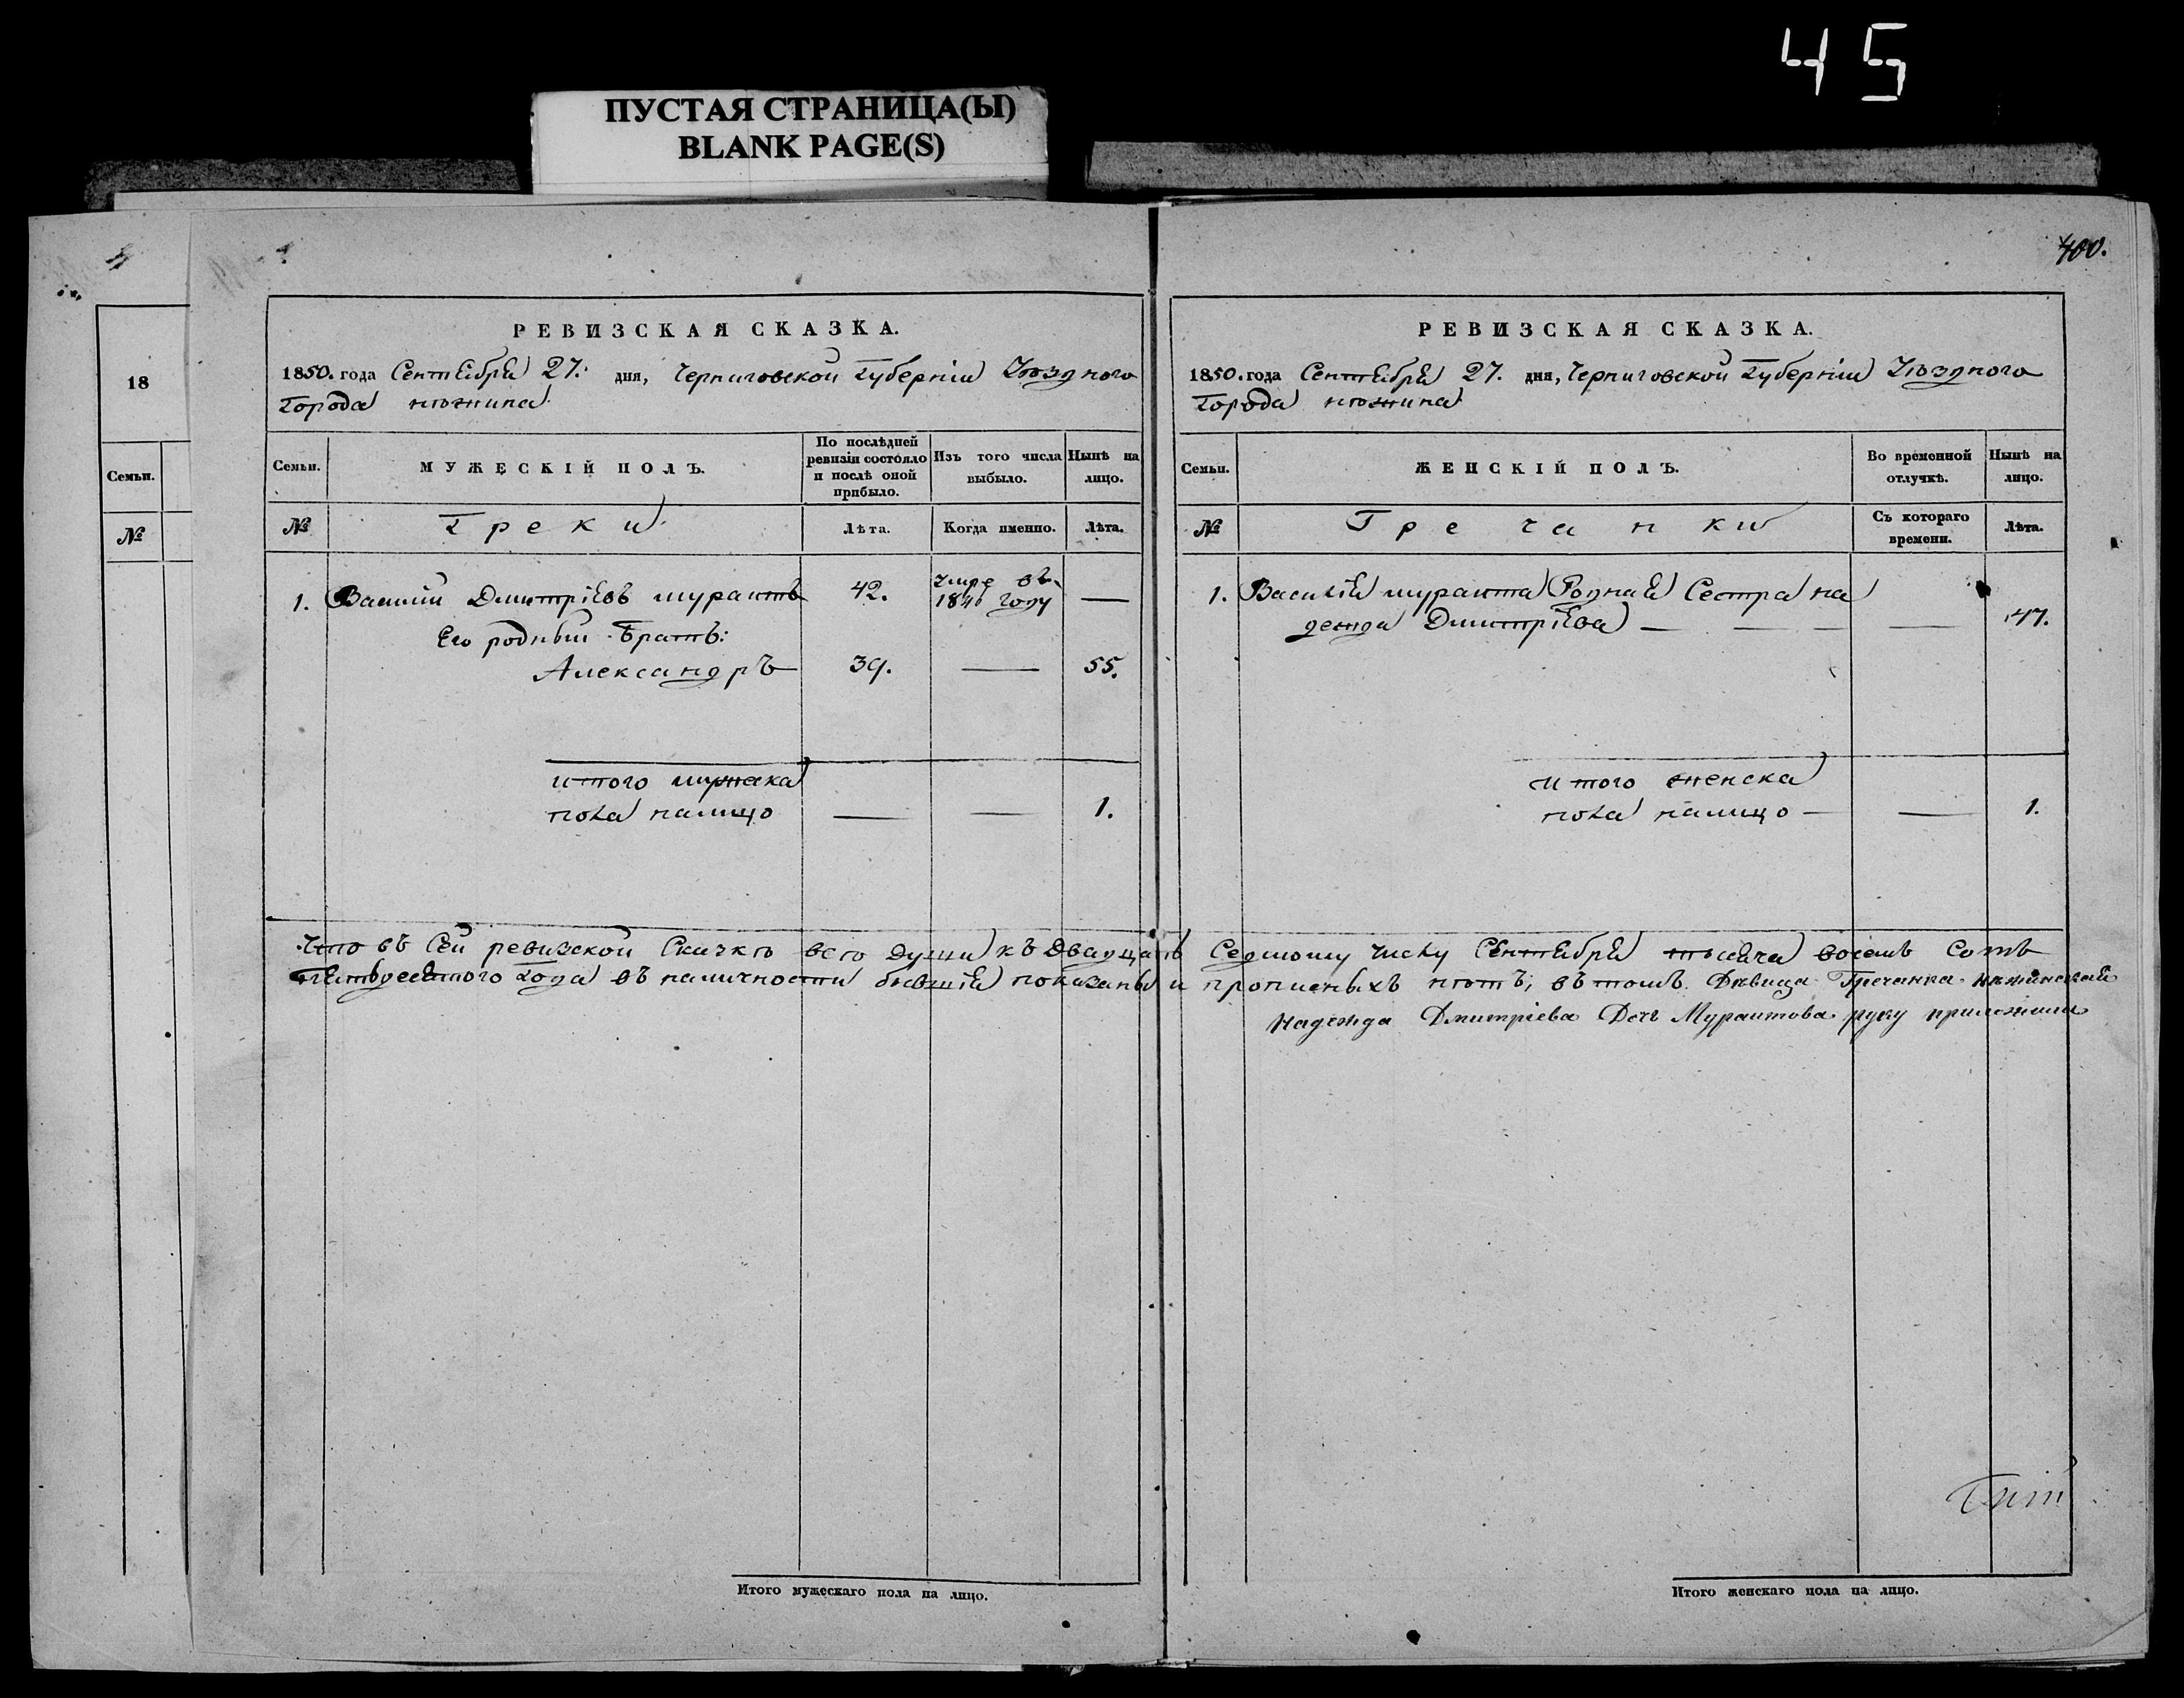 45
ПУСТАЯ СТРАНИЦА(Ы)
BLANK PAGE(S)
400.
18
Семьи.
№
РЕВИЗСКАЯ СКАЗКА.
1850. года Сентября 27. дня, Черниговской Губерніи Уѣзднаго
Города нѣжина
Семьи.
МУЖЕСКІЙ ПОЛЪ.
По послѣдней ревизіи состояло и послѣ оной прибыло.
Изъ того числа выбыло.
Нынѣ на лицо.
№
Греки
Лѣта.
Когда именно.
Лѣта.
1. Василий Дмитріевъ мураитъ 42. умре въ 1846 году —
Его родный Братъ:
Александръ 39. — 55.
итого мужеска
пола налицо — — 1.
РЕВИЗСКАЯ СКАЗКА.
1850. года Сентября 27. дня, Черниговской Губерніи Уѣзднаго
Города нѣжина
Семьи.
ЖЕНСКІЙ ПОЛЪ.
Во временной отлучкѣ.
Нынѣ на лицо.
№
Гречанки
Съ котораго времени.
Лѣта.
1. Василія мураита Родная Сестра на
дежда Дмитріева — — — — 47.
итого женска
пола налицо — — 1.
Что въ Сей ревизской Скачкѣ всѣ души къ Двадцать Седмому числу Сентября тысяча восемь Сотъ
Пятьдесятого Года въ наличности бывшія показаны и прописныхъ нѣтъ, въ томъ Дѣвица Гречанка нѣжинская
Надежда Дмитріева Дочь Мураитова руку приложила
Итого мужескаго пола на лицо.
Итого женскаго пола на лицо.